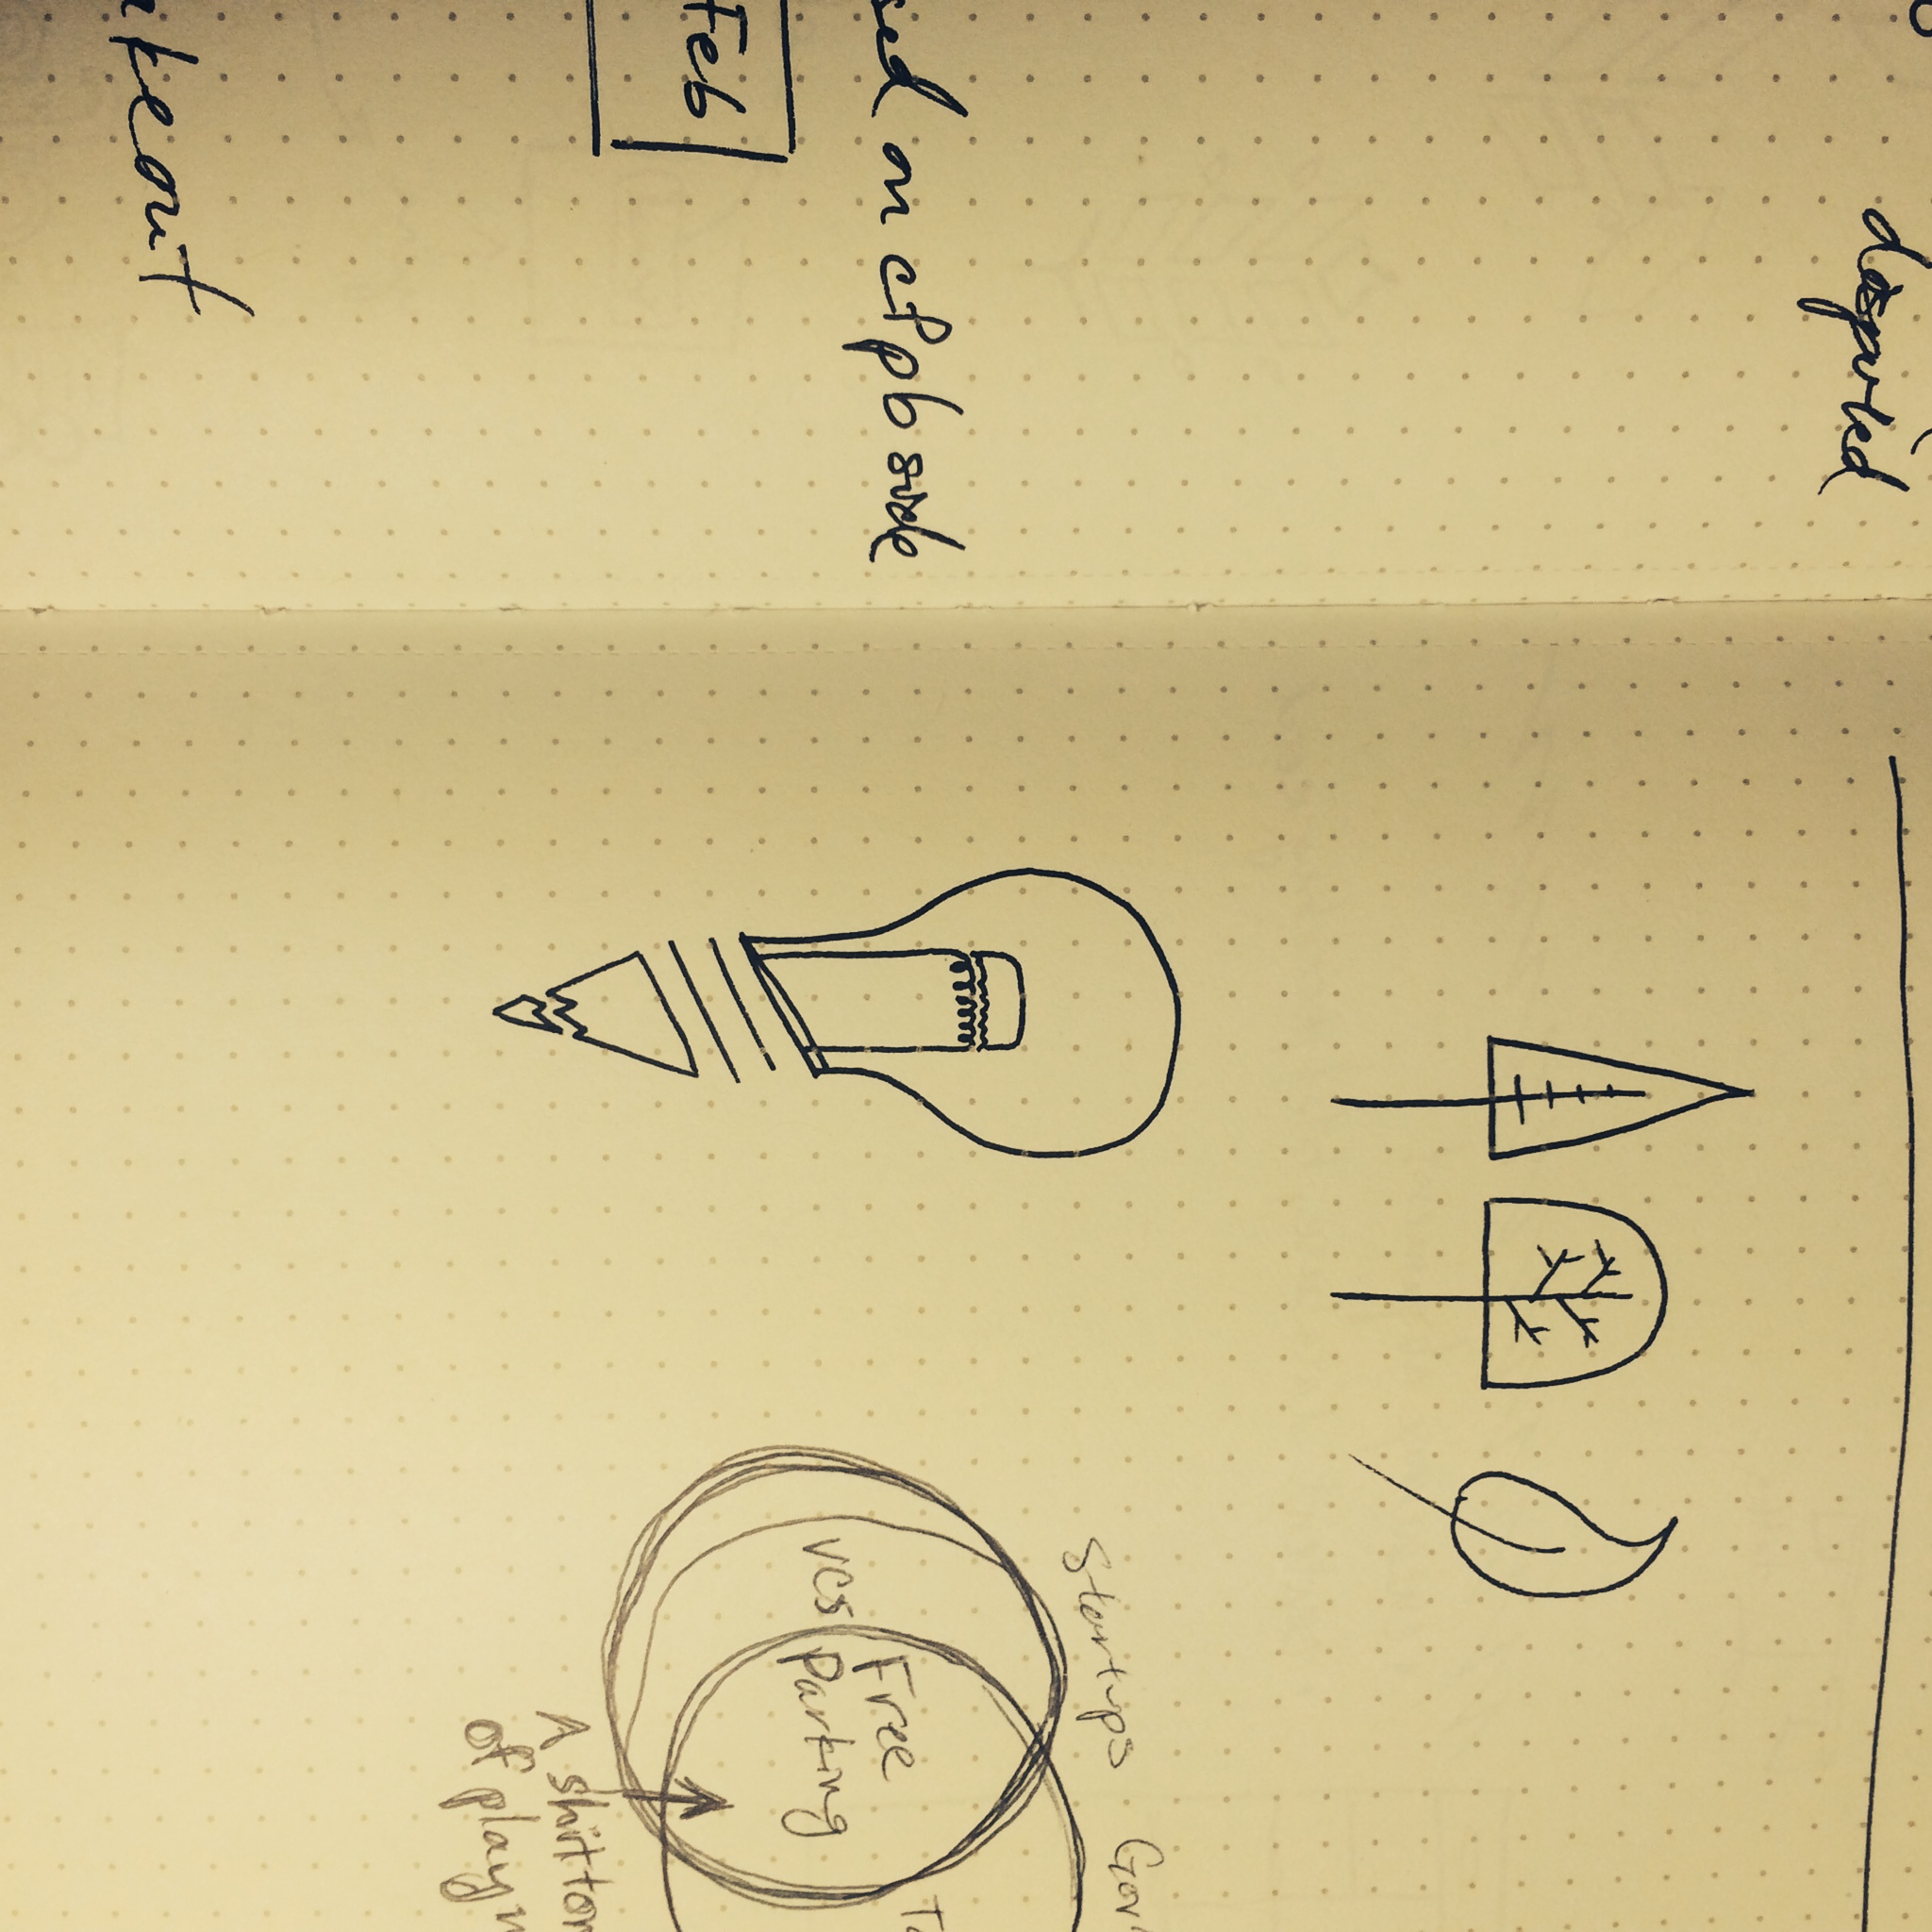 departed
sed on cfpb side
Feb
keout
Startups
Gov
VCs
Free
Parking
A shitton
of play